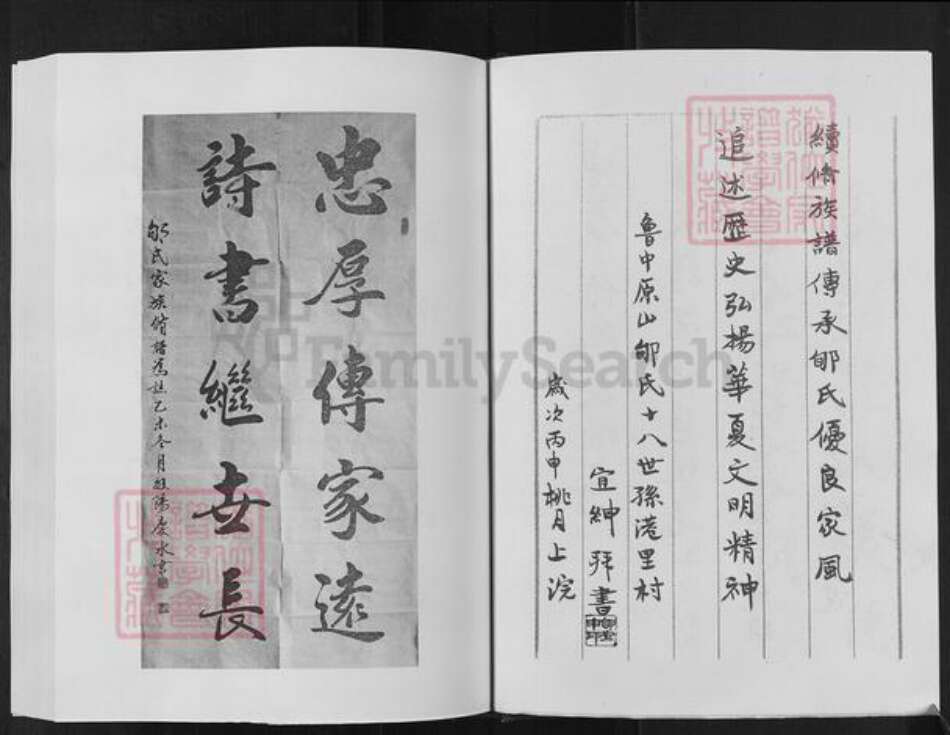 續脩族譜傳承郇氏優良家風
追述歷史弘揚華夏文明精神
魯中原山郇氏十八世孫港里村
宣紳拜書
歲次丙申桃月上浣
忠厚傳家遠
詩書繼世長
郇氏家族脩譜為誌乙未冬月
FamilySearch